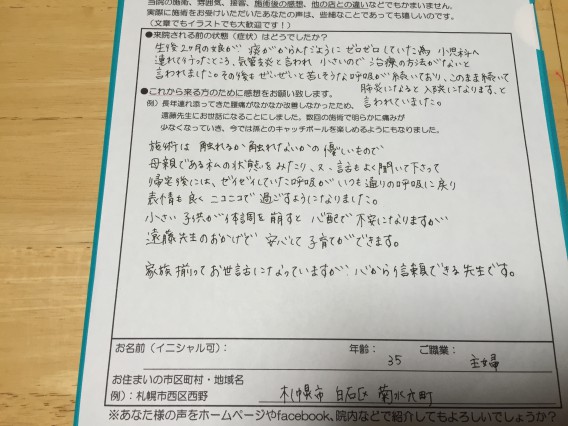 当院の施術、雰囲気、接客、施術後の感想、他の店との違いなどでもかまいません。
実際に施術をお受けいただいたあなたの声は、些細なことであっても嬉しいのです。
（文章でもイラストでも大歓迎です！）
●来院される前の状態（症状）はどうでしたか？
生後2ヶ月の娘が 痰がからんだようにゼロゼロしていた為 小児科へ
連れて行ったところ、気管支炎と言われ 小さいので 治療の方法がないと
言われました。その後もぜいぜいと苦しそうな呼吸が続いており、このまま続いて
肺炎になると 入院になります、と
言われていました。
●これから来る方のために感想をお願い致します。
例）長年連れ添ってきた腰痛がなかなか改善しなかったため、
遠藤先生にお世話になることにしました。数回の施術で明らかに痛みが
少なくなっていき、今では孫とのキャッチボールを楽しめるようにもなりました。
施術は 触れるか触れないかの 優しいもので
母親である私の状態をみたり、又、話もよく聞いて下さって
帰宅後には、ゼイゼイしていた呼吸が いつも通りの呼吸に戻り
表情も良く ニコニコで過ごすようになりました。
小さい子供が体調を崩すと 心配で 不安になりますが
遠藤先生のおかげで 安心して 子育てができます。
家族揃ってお世話になっていますが、心から信頼できる先生です。
お名前（イニシャル可）：
年齢： 35 ご職業： 主婦
お住まいの市区町村・地域名
例）：札幌市西区西野 札幌市 白石区 菊水六町
※あなた様の声をホームページやfacebook、院内などで紹介してもよろしいでしょうか？